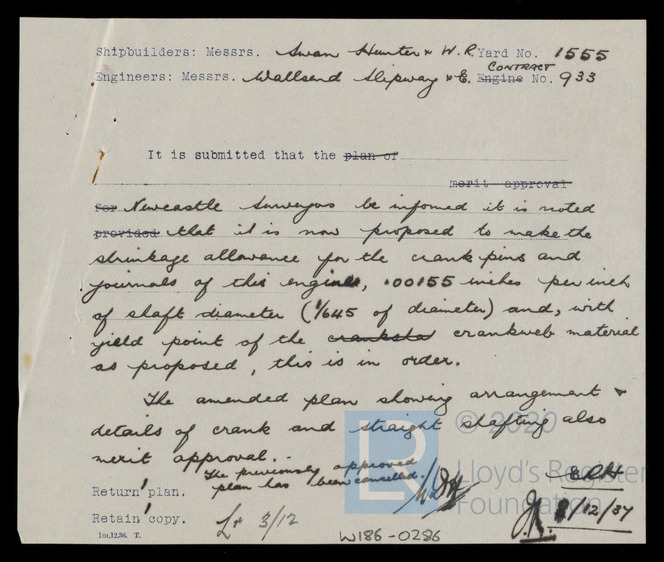 Shipbuilders: Messrs. Swan Hunter & W.R. Yard No. 1555
CONTRACT
Engineers: Messrs. Wallsend Slipway & E. Engine No. 933
It is submitted that the plan of
merit approval
for Newcastle Surveyors be informed it is noted
provided that it is now proposed to make the
shrinkage allowance for the crank pins and
journals of this engine, .00155 inches per inch
of shaft diameter (1/645 of diameter) and, with
yield point of the cranksha crankweb material
as proposed, this is in order.
The amended plan showing arrangement &
details of crank and straight shafting also
merit approval.
The previously approved
plan has been cancelled.
Return 1 plan.
Retain 1 copy.
Lr 3/12
1m,12.36. T.
W186-0286
/12/37
© 2020
Lloyd's Register
Foundation
LR